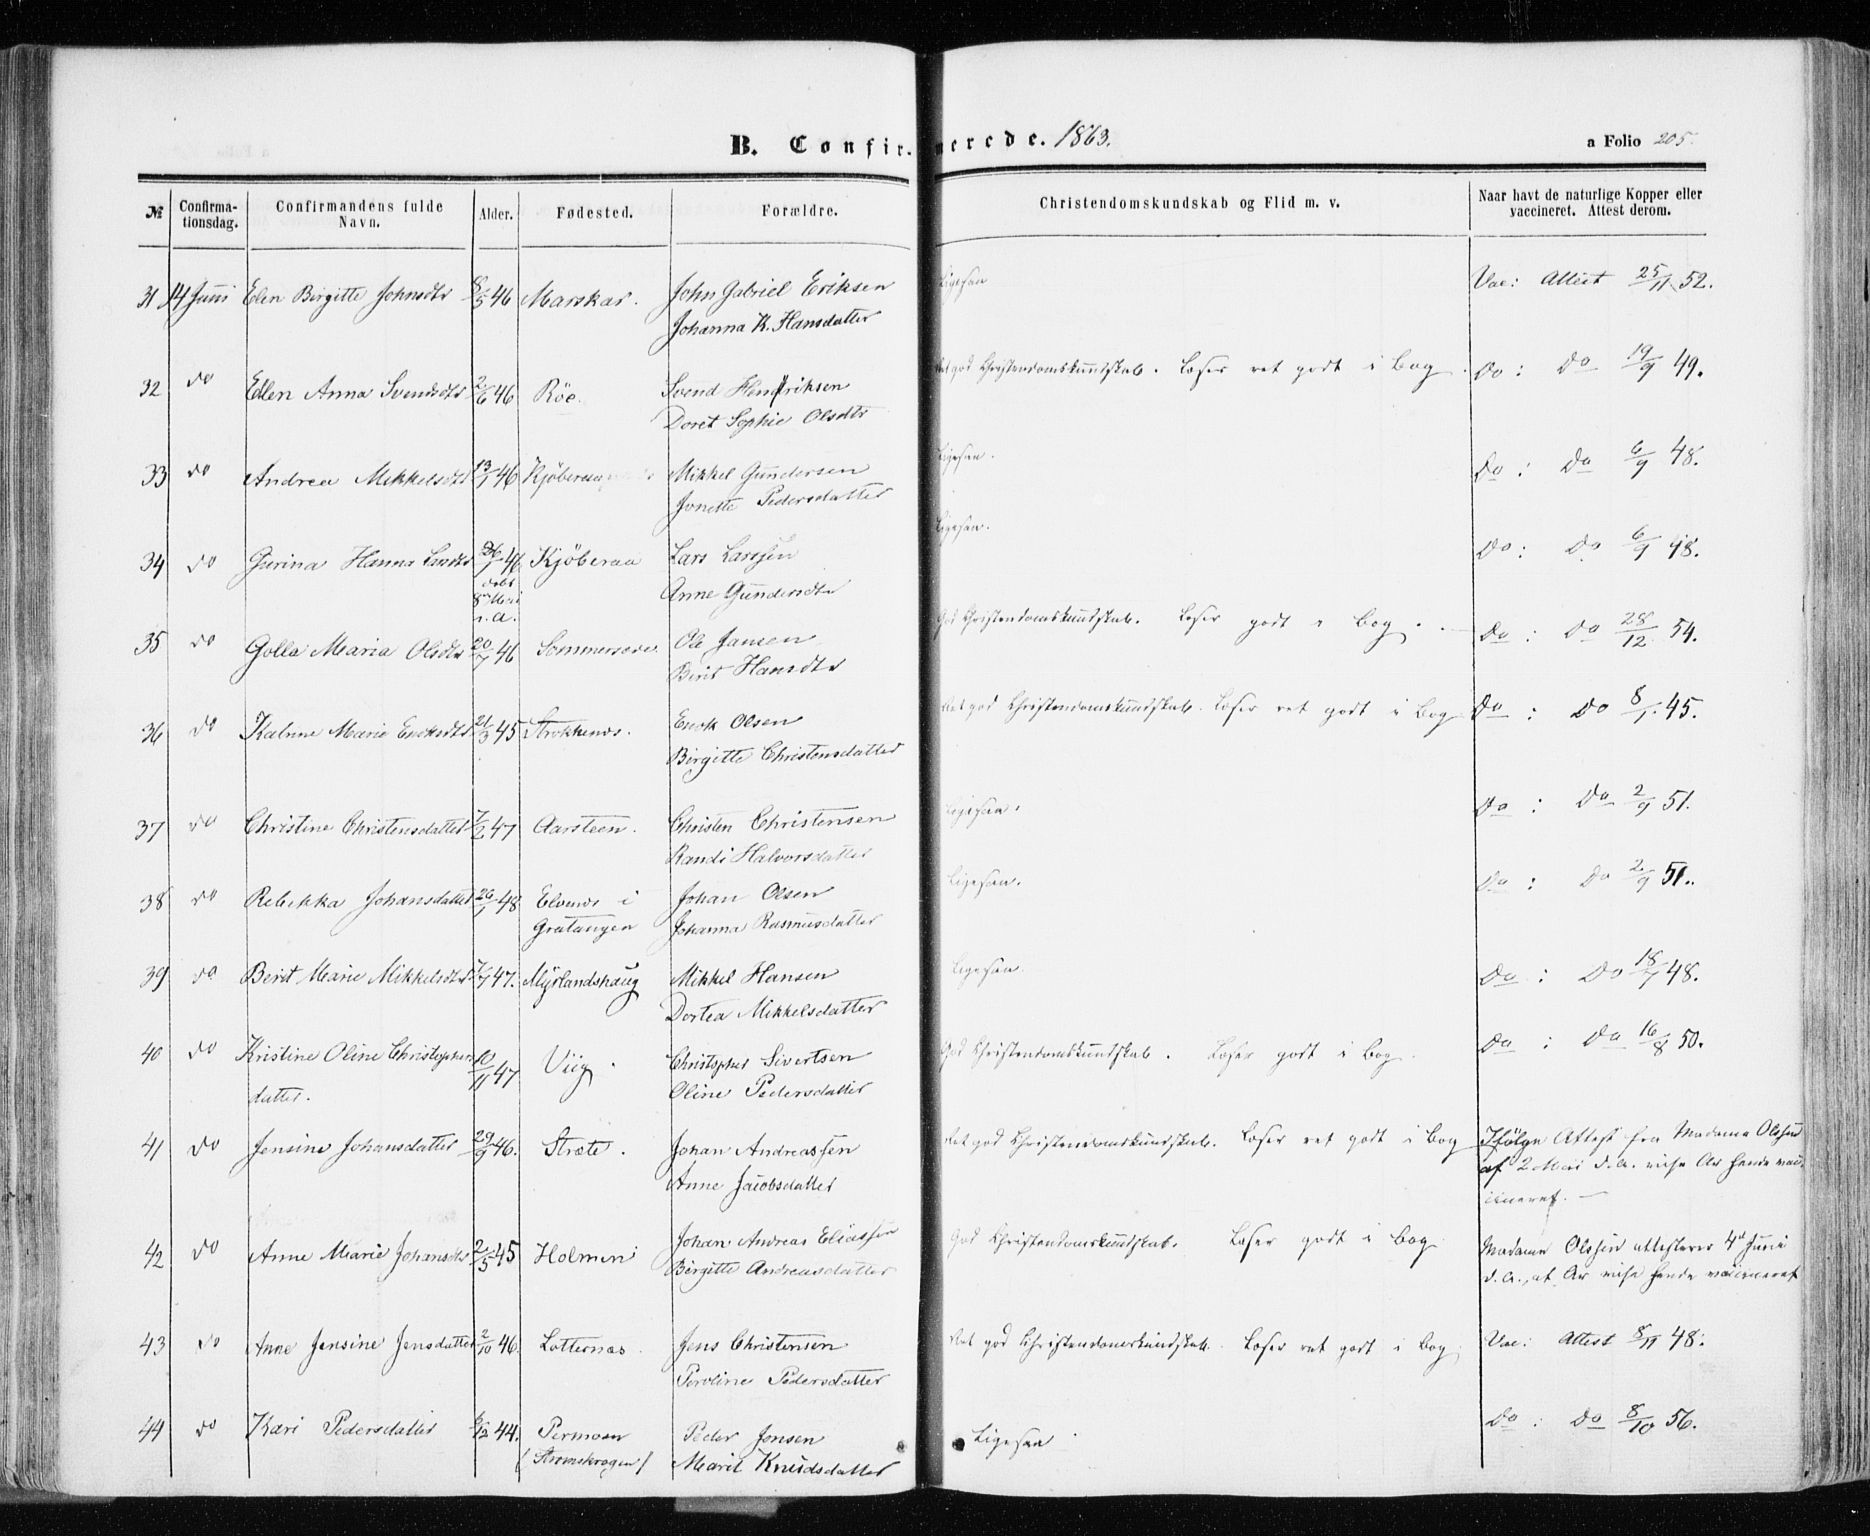 B. Confirmerede. 1863.
a Folio 205.
№ Confirma-tionsdag. Confirmandens fulde Navn. Alder. Fødested. Forældre. Christendomskundskab og Flid m. v. Naar havt de naturlige Kopper eller vaccineret. Attest derom.
31 14 Juni Elen Birgitte Johnsdtr 8/5 46 Marskar. John Gabriel Eriksen Ligesaa Vac: Attest 25/11 52.
Johanna K. Hansdatter
32 do Ellen Anna Svendsdtr 2/6 46 Röe. Svend Hendriksen Ret god Christendomskundskab. Læser ret godt i Bog. Do: Do 19/9 49.
Doret Sophie Olsdtr
33 do Andrea Mikkelsdtr 13/1 46 Mikkel Gundersen Ligesaa. Do: Do 6/9 48.
Jonette Pedersdatter
34 do Gurina Hanna Larsdtr 26/1 46 Kjöberaa Lars Larssen Ligesaa. Do: Do 6/9 48.
döbt 8 Mai s. A. Anne Gundersdtr
35 do Golla Maria Olsdtr 20/7 46 Ole Jansen God Christendomskundskab. Læser godt i Bog. Do: Do 28/12 54.
Berit Hansdtr
36 do Katrine Marie Ericksdtr 21/3 45 Strokkenæs. Erick Olsen Ret god Christendomskundskab. Læser ret godt i Bog Do: Do 8/1 45.
Birgitte Christensdatter
37 do Christine Christensdatter 7/2 47 Aarsteen. Christen Christensen Ligesaa. Do: Do 2/9 51.
Randi Halvorsdatter
38 do Rebekka Johansdatter 26/1 48 Elvenæs i Johan Olsen Ligesaa. Do: Do 2/9 51.
Gratangen Johanna Rasmusdatter
39 do Berit Marie Mikkelsdtr 7/7 47. Myrlandshaug Mikkel Hansen Ligesaa. Do: Do 18/7 48.
Dortea Mikkelsdatter
40 do Kristine Oline Christopher 10/11 47 Viig. Christopher Sivertsen God Christendomskundskab. Læser godt i Bog. Do: Do 16/8 50.
datter. Oline Pedersdatter
41 do Jensine Johansdatter 29/9 46. Stræte. Johan Andreassen Ret god Christendomskundskab. Læser ret godt i Bog Ifölge Attest fra Madame Olssen
Anne Jacobsdatter af 2 Mai d.A. vise Ar hende vac
cineret. —
42 do Anne Marie Johansdtr 2/5 45 Holmen Johan Andreas Eliassen God Christendomskundskab. Læser godt i Bog Madame Olssen attesterer 4de Juni
Birgitte Andreasdatter d.A., at Ar vise hende vaccineret
43 do Anne Jensine Jensdatter 2/10 46. Lotternæs. Jens Christensen Ret god Christendomskundskab. Læser ret godt i Bog. Vac: Attest 8/11 48:
Peroline Pedersdatter
44 do Kari Pedersdatter 6/12 44. Permoen Peder Jensen Ligesaa Do: Do 8/10 56.
(Strömskrogen) Marit Knudsdatter